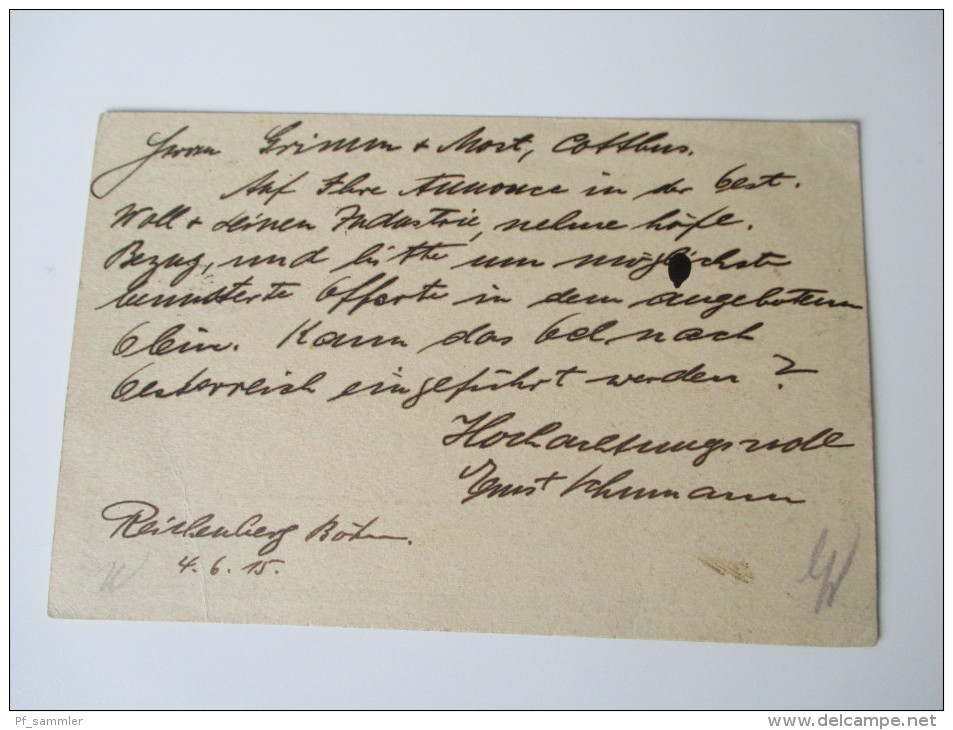 Herren Grimm & Most, Cottbus.
Auf Ihre Annonce in der Oest.
Woll & Leinen Industrie, nehme höfl.
Bezug, und bitte um möglichste
bemusterte Offerte in dem angebotenen
Olein. Kann das Oel nach
Oesterreich eingeführt werden?
Hochachtungsvoll
Ernst Schumann
Reichenberg Böhm.
4. 6. 15.
Pf_sammler
www.delcampe.net